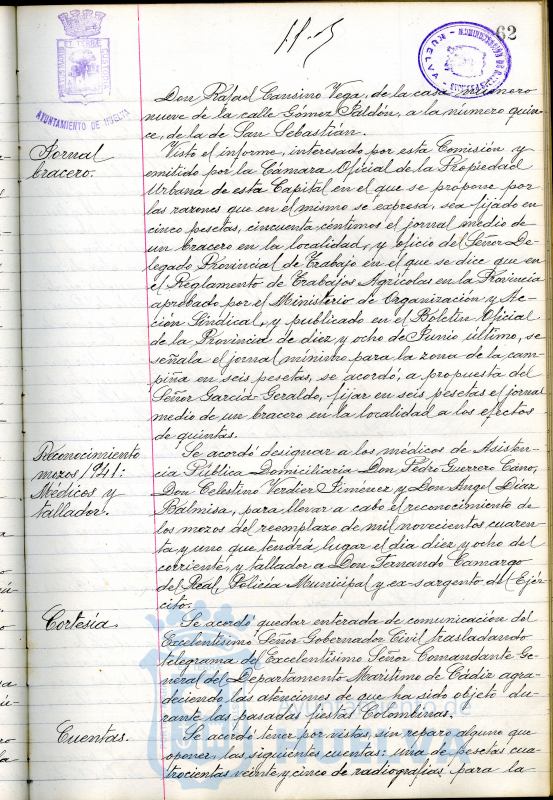 62
AYUNTAMIENTO DE HUELVA
Don Rafael Cansino Vega, de la casa número
nueve de la calle Gómez Jaldón, a la número quin-
ce, de la de San Sebastian.
Jornal
bracero.
Visto el informe, interesado por esta Comisión y
emitido por la Cámara Oficial de la Propiedad
Urbana de esta Capital en el que se propone por
las razones que en él mismo se expresa, sea fijado en
cinco pesetas, cincuenta céntimos el jornal medio de
un bracero en la localidad, y oficio del Señor De-
legado Provincial de Trabajo en el que se dice que en
el Reglamento de Trabajos Agrícolas en la Provincia
aprobado por el Ministerio de Organización y Ac-
ción Sindical, y publicado en el Boletin Oficial
de la Provincia de diez y ocho de Junio último, se
señala el jornal mínimo para la zona de la cam-
piña en seis pesetas, se acordó, a propuesta del
Señor Garcia-Geraldo, fijar en seis pesetas el jornal
medio de un bracero en la localidad a los efectos
de quintas.
Reconocimiento
mozos 1941:
Medicos y
tallador.
Se acordó designar a los médicos de Asisten-
cia Pública Domiciliaria Don Pedro Guerrero Cano,
Don Celestino Verdier Jiménez y Don Angel Diaz
Balmisa, para llevar a cabo el reconocimiento de
los mozos del reemplazo de mil novecientos cuaren-
ta y uno que tendrá lugar el dia diez y ocho del
corriente, y tallador a Don Fernando Camargo
del Real, Policía Municipal y ex-sargento del Ejér-
cito.
Cortesía.
Se acordó quedar enterada de comunicación del
Excelentísimo Señor Gobernador Civil trasladando
telegrama del Excelentísimo Señor Comandante Ge-
neral del Departamento Marítimo de Cádiz agra-
deciendo las atenciones de que ha sido objeto du-
rante las pasadas fiestas Colombinas.
Cuentas.
Se acordó tener por vistas, sin reparo alguno que
oponer, las siguientes cuentas: una de pesetas cua-
trocientas veinte y cinco de radiografias para la
Ayuntamiento de